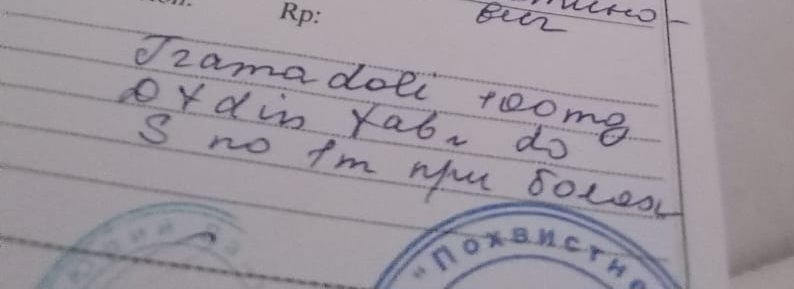 Rp:
Tramadoli 100mg
D t d in tab N
S по 1т при болях
"Похвистне